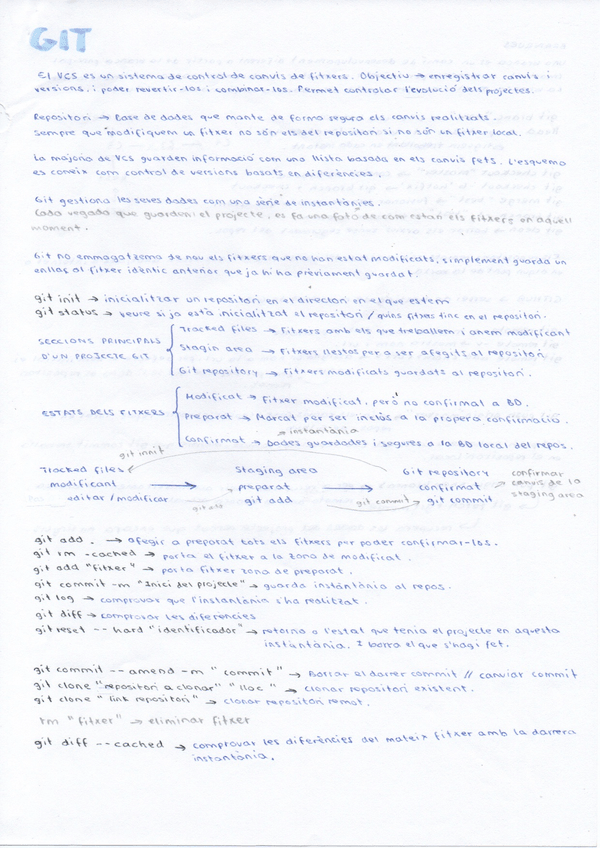 GIT
El VCS es un sistema de control de canvis de fitxers. Objectiu → enregistrar canvis i
versions, i poder revertir-los i combinar-los. Permet controlar l'evolució dels projectes.
Repositori → Base de dades que mante de forma segura els canvis realitzats.
Sempre que modifiquem un fitxer no són els del repositori si no són un fitxer local.
La majoria de VCS guarden informació com una llista basada en els canvis fets. L'esquema
es coneix com control de versions basats en diferències.
Git gestiona les seves dades com una sèrie de instantànies.
Cada vegada que guardum el projecte, es fa una foto de com estan els fitxers en aquell
moment.
Git no emmagatzema de nou els fitxers que no han estat modificats, simplement guarda un
enllaç al fitxer idèntic anterior que ja hi ha prèviament guardat.
git init → inicialitzar un repositori en el directori en el que estem
git status → veure si ja està inicialitzat el repositori / quins fitxers tinc en el repositori.
SECCIONS PRINCIPALS
D'UN PROJECTE GIT
Tracked files → Fitxers amb els que treballem i anem modificant
Stagin area → Fitxers llestos per a ser afegits al repositori
Git repository → Fitxers modificats guardats al repositori.
ESTATS DELS FITXERS
Modificat → Fitxer modificat, però no confirmat a BD.
Preparat → Marcat per ser inclòs a la propera confirmació.
→ instantània
Confirmat → Dades guardades i segures a la BD local del repos.
git innit
Tracked files Staging area Git repository confirmar
modificant → preparat → confirmat canvis de la
editar / modificar git add git commit staging area
git add git commit
git add . → afegir a preparat tots els fitxers per poder confirmar-los.
git rm -cached → porta el fitxer a la zona de modificat.
git add "fitxer" → porta fitxer zona de preparat.
git commit -m "Inici del projecte" → guarda instàntània al repos.
git log → comprovar que l'instantània s'ha realitzat.
git diff → comprovar les diferències
git reset -- hard "identificador" → retorna a l'estat que tenia el projecte en aquesta
instantània. I borra el que s'hagi fet.
git commit -- amend -m "commit" → Borrar el darrer commit // canviar commit
git clone "repositori a clonar" "lloc" → clonar repositori existent.
git clone "link repositori" → clonar repositori remot.
rm "fitxer" → eliminar fitxer
git diff --cached → comprovar les diferències del mateix fitxer amb la darrera
instantània.